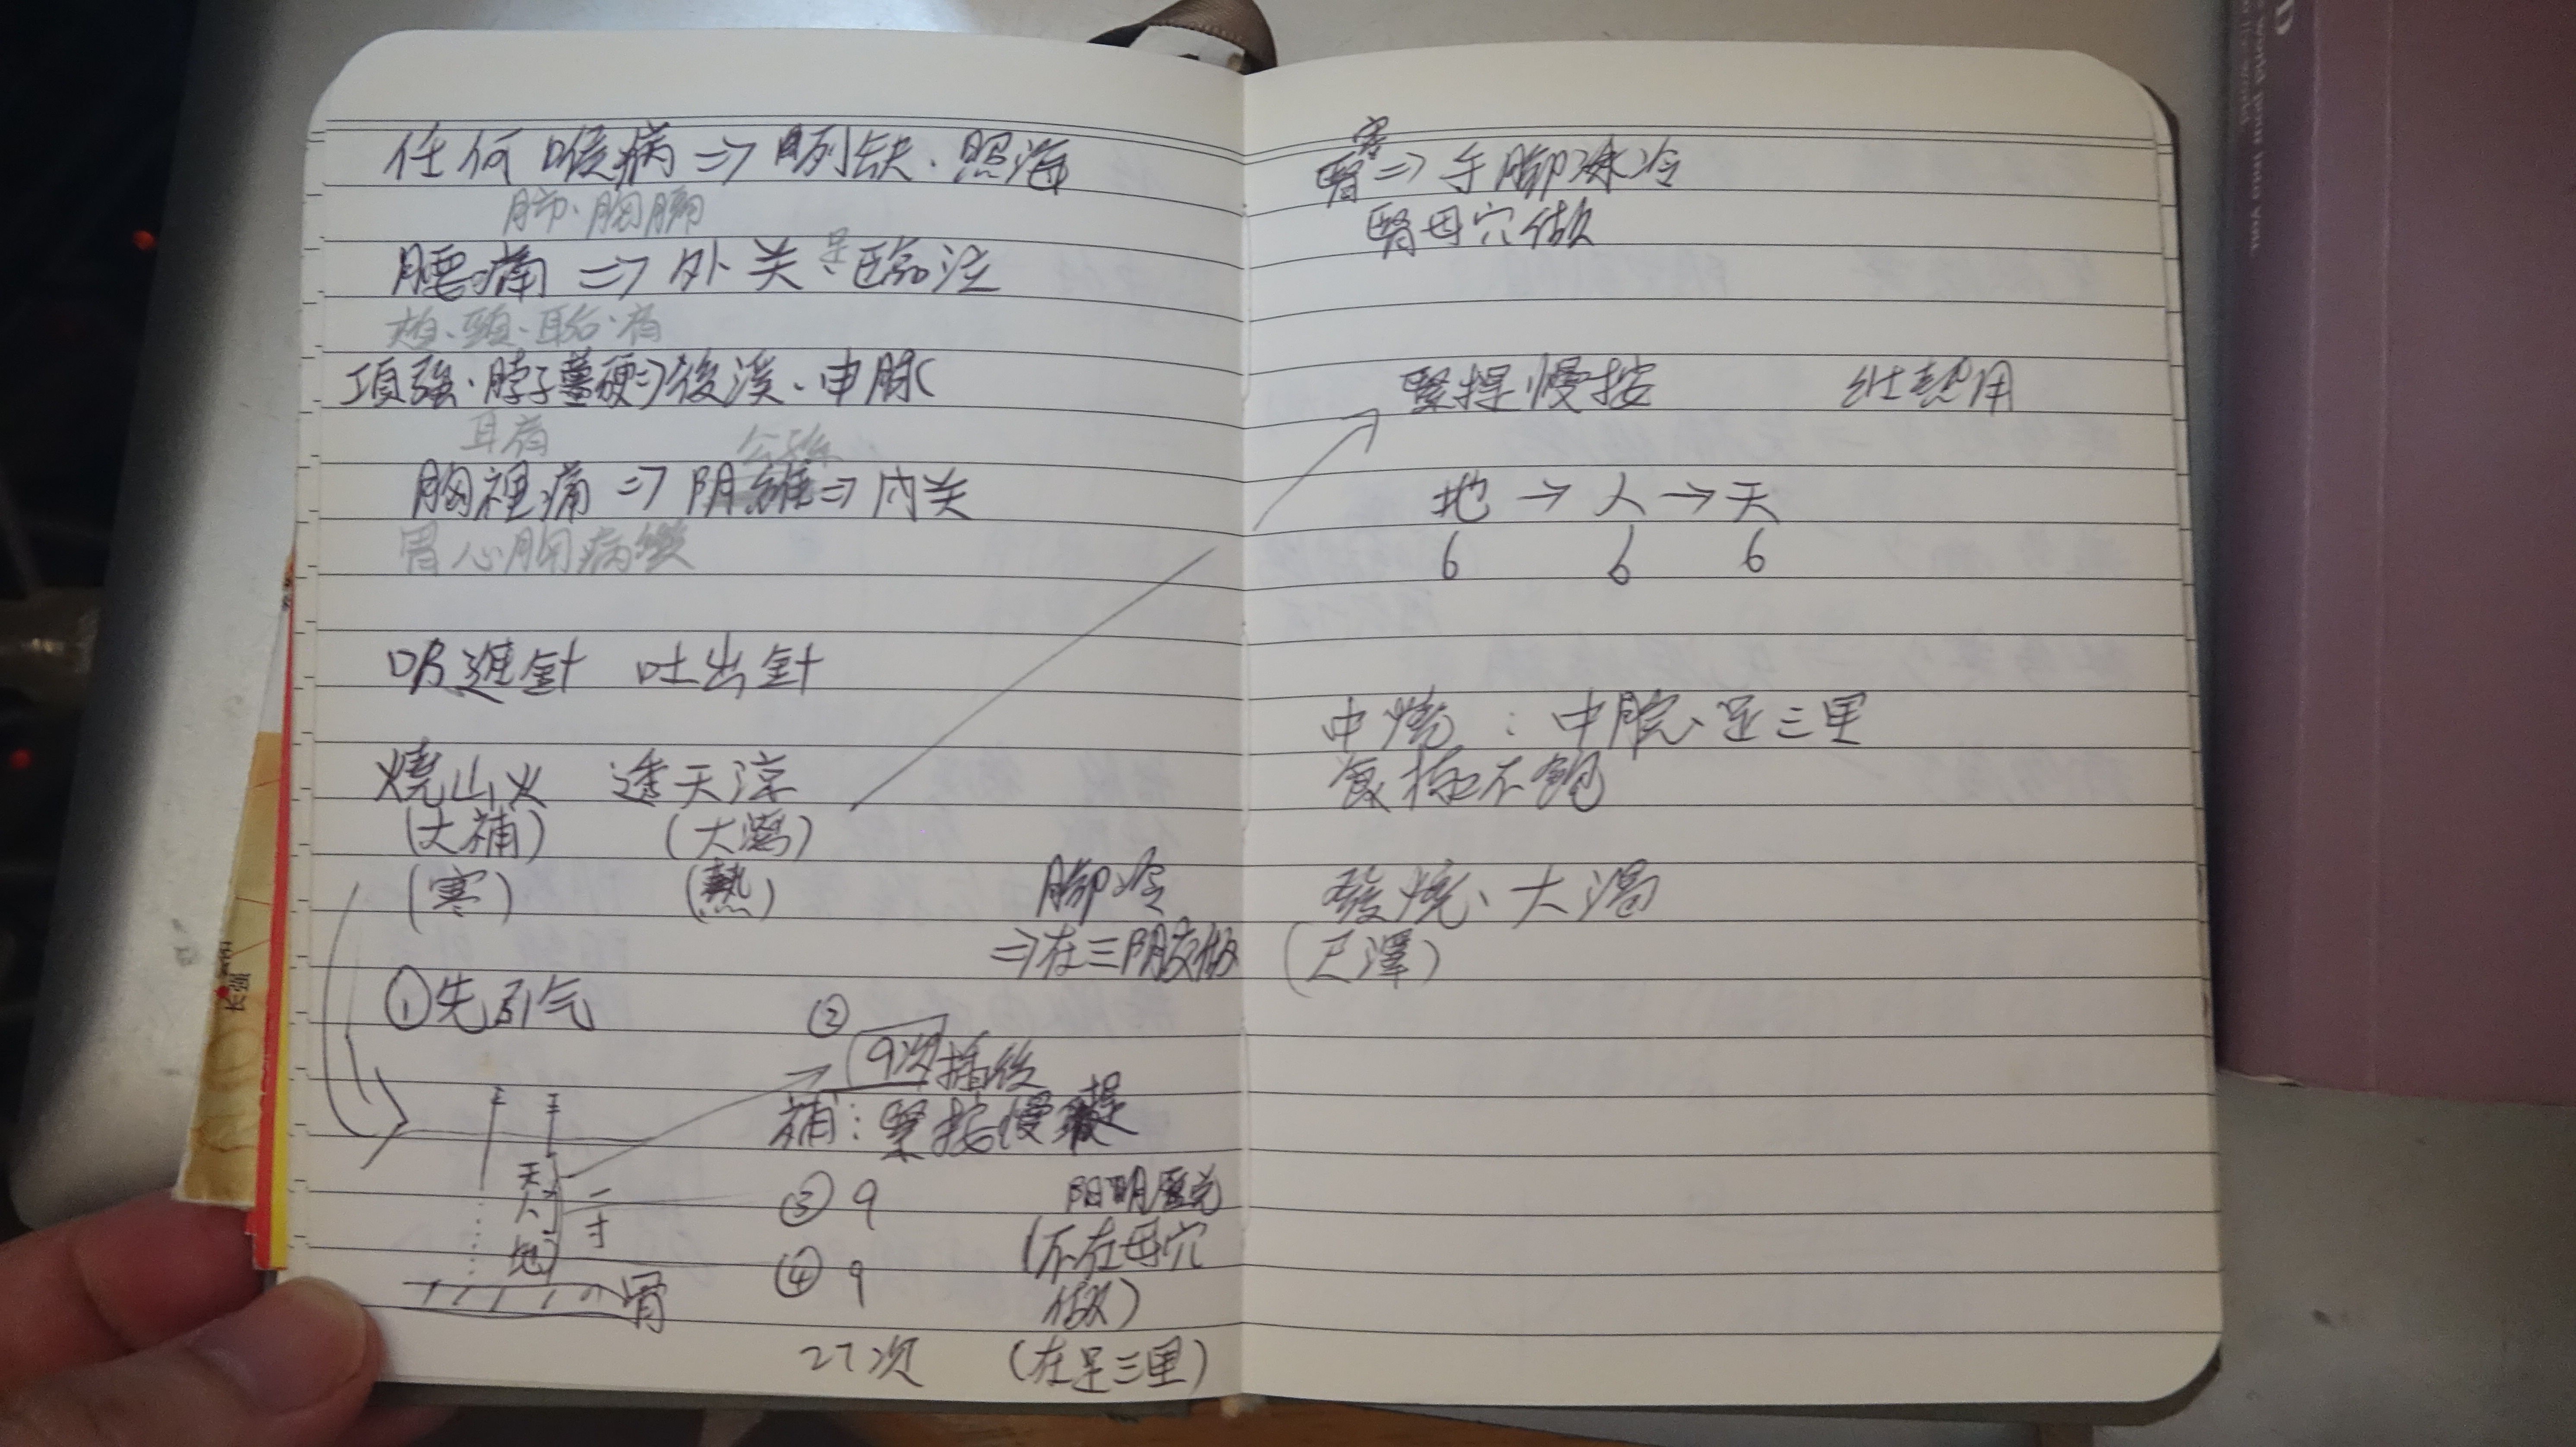 任何喉病⇒列缺、照海
肺、胸膈
腰痛⇒外关 足臨泣
頭、
項強、脖子薑硬⇒後溪、申脉
耳肩
公孫
胸裡痛⇒阴維⇒内关
胃心胸病變
吸進針 吐出針
燒山火 透天涼
(大補) (大瀉)
(寒) (熱)
脚冷
⇒在三阴交做
①先引气
②
9次 插後
補:緊按慢提
天
人
地
二寸
骨
③9
④9
27次
阳明
(不在母穴
做)
(在足三里)
寒
腎⇒手脚冰冷
腎母穴做
緊提慢按
地→人→天
6 6 6
中燒:中脘、足三里
發燒、大渴
(尺澤)
长强